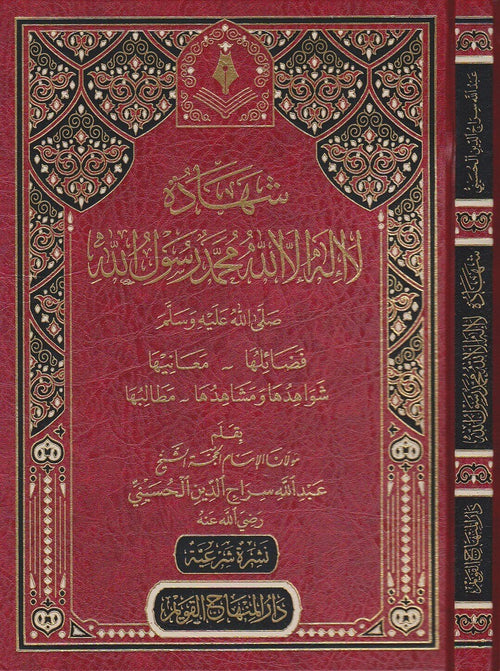 شهادة
لا إله إلا الله محمد رسول الله
صلى الله عليه وسلم
فضائلها - معانيها
شواهدها ومشاهدها - مطالبها
بقلم
مولانا الإمام الحجة الشيخ
عبد الله سراج الدين الحسيني
رضي الله عنه
نشرة شرعية
دار المنهاج القويم
عبد الله سراج الدين الحسيني
شهادة لا إله إلا الله محمد رسول الله
دار المنهاج القويم